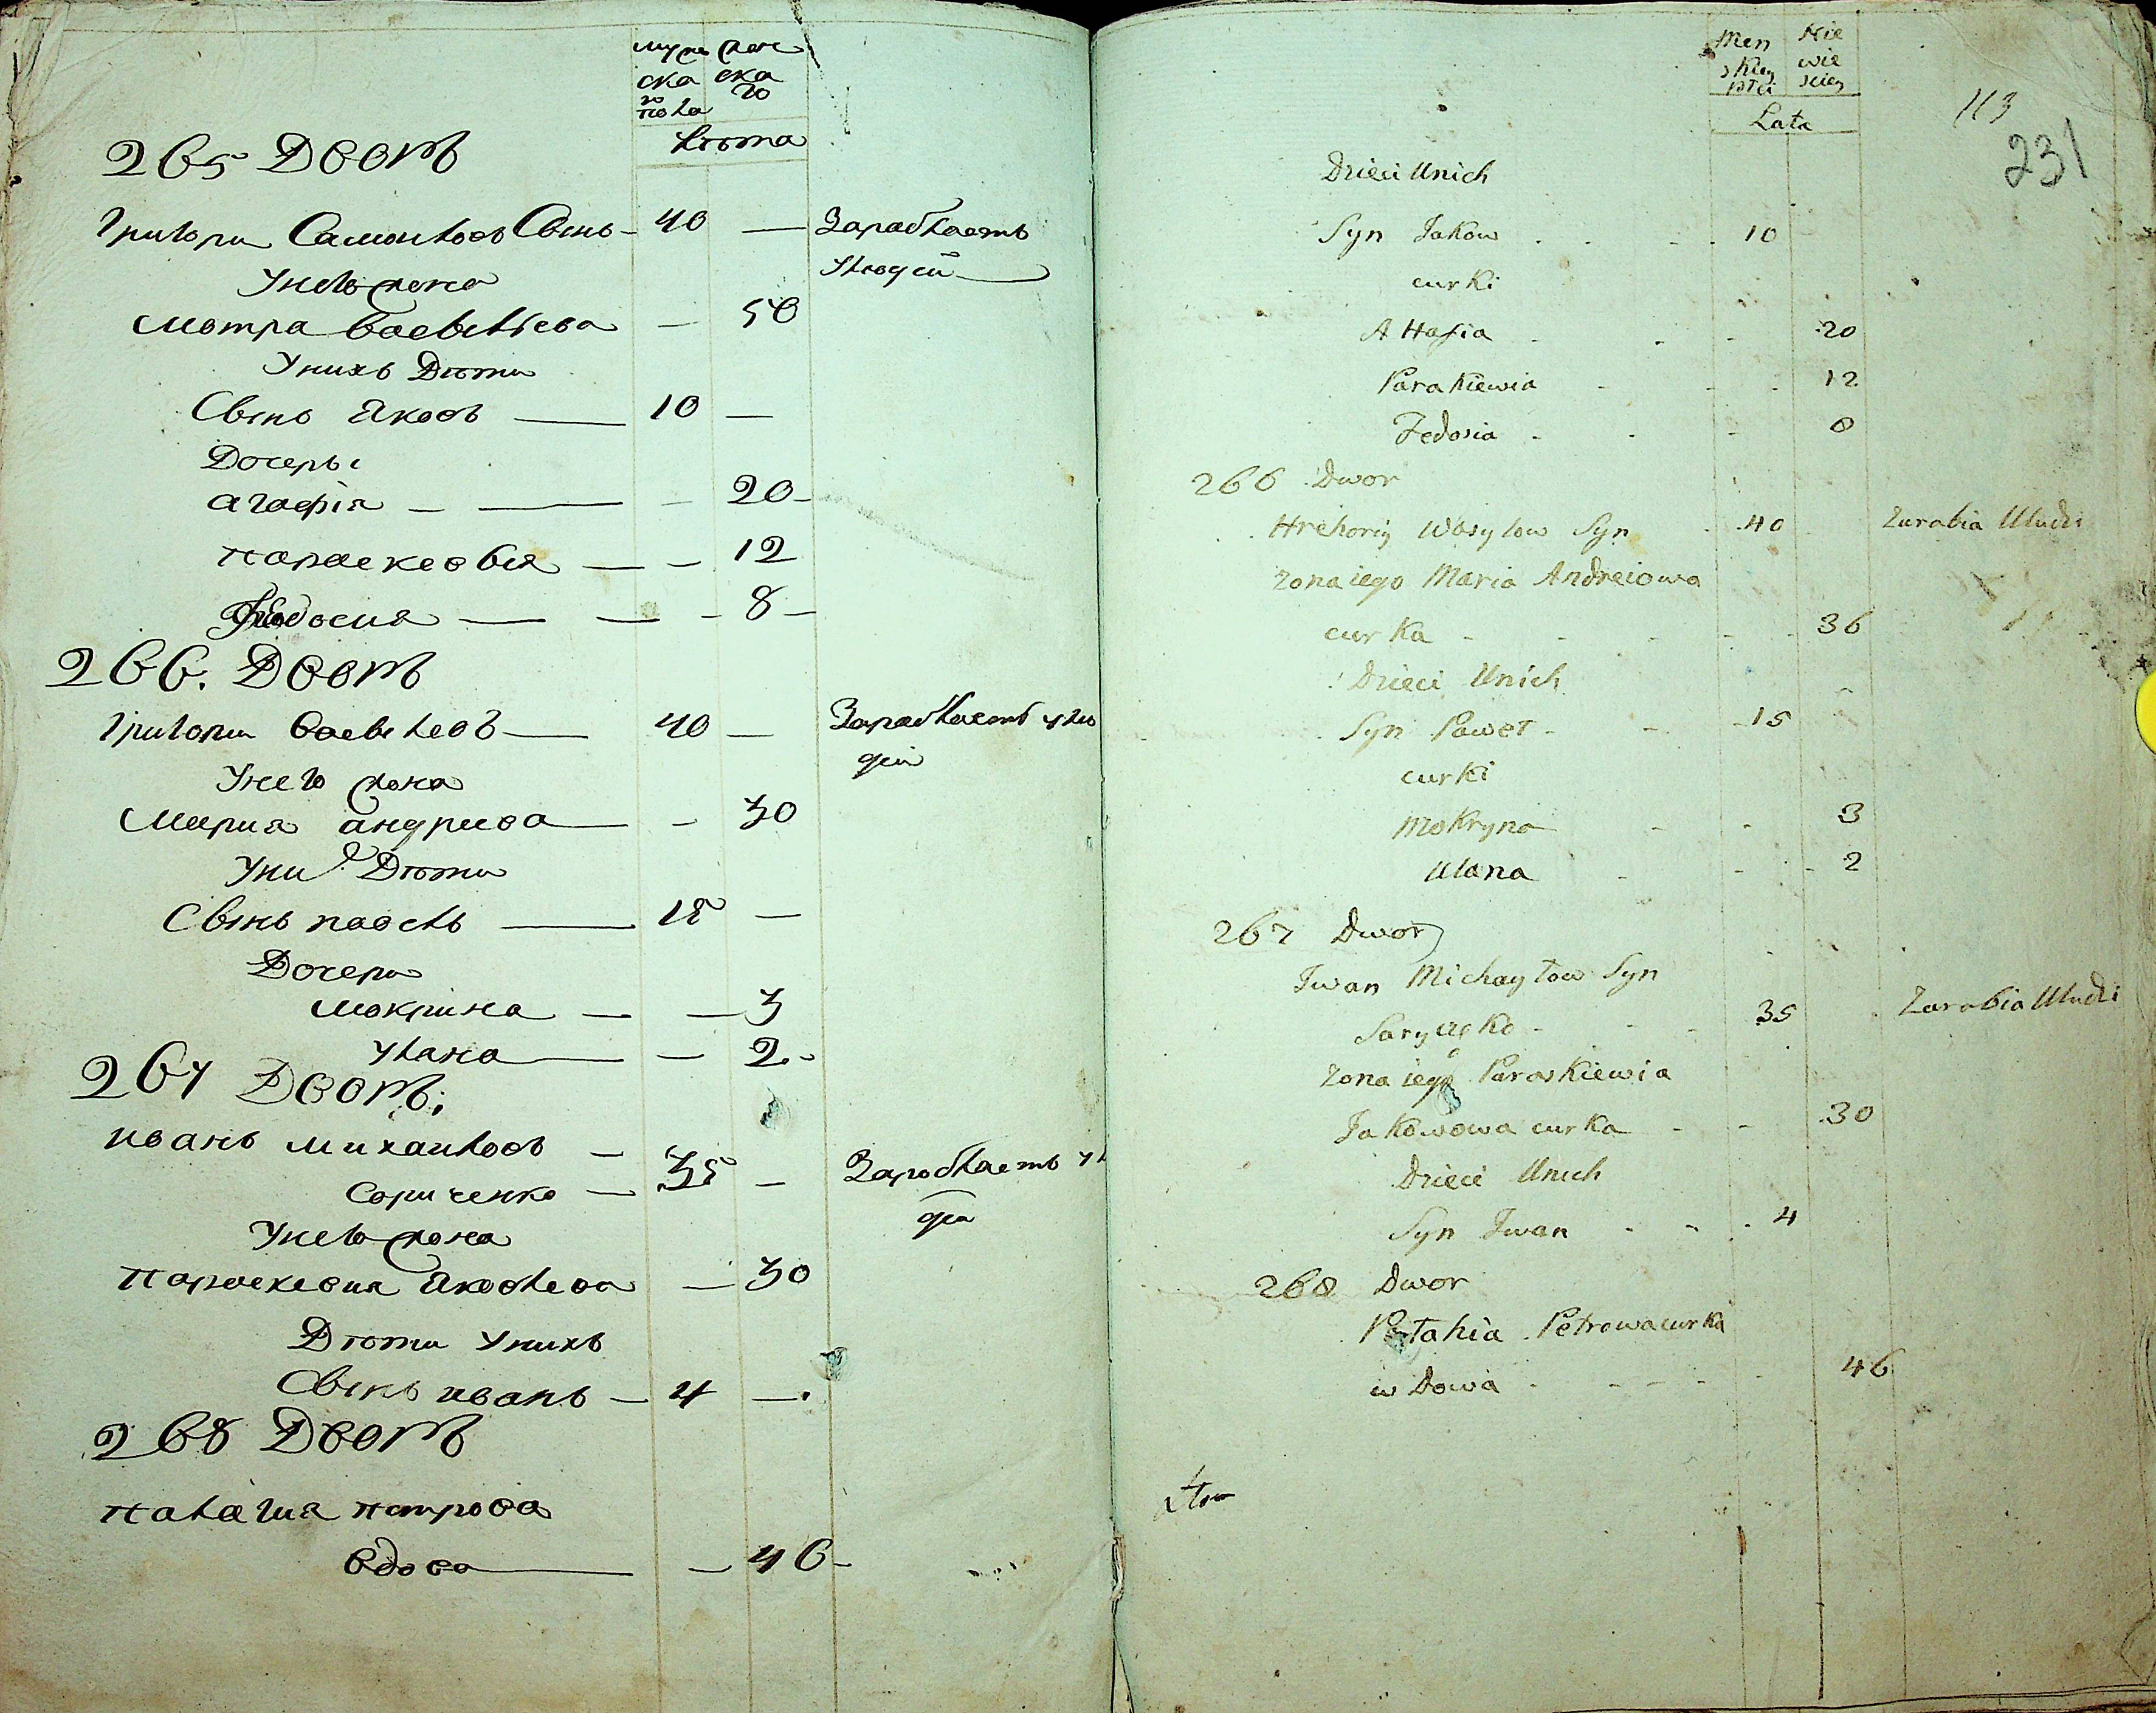 муже жен
ска ска
го го
пола
Лѣта
265 Дворъ
Григори Самоиловъ Сынъ 40 — Зараблаетъ
Унего жона улюдей
Мотра Васылѣева — 50
Унихъ Дѣти
Сынъ Яковъ — 10 —
Дочеры
Агафія — — 20 —
Параскеовъя — — 12
Феодосия — — 8 —
266. Дворъ
Григори Васылевъ — 40 — Зараблаетъ улю
дей
Унего жона
Мария андриева — — 30
Уних Дѣти
Сынъ павелъ — 15 —
Дочери
Мокрина — — 3
Улана — — 2 -
267 Дворъ.
иванъ михаиловъ —
Сориченко — 35 — Зароблаетъ ул
дей
Унего жона
параскевия Яковлева — 30
Дѣти Унихъ
Сынъ иванъ — 4 —.
268 Дворъ
палагия петрова
вдова — — 46 —
Men Nie
skiey wie
płci sciey
Lata
113
231
Dzieci Unich
Syn Jakow 10
curki
AHafia 20
Paraskiewia 12
Fedosia 8
266 Dwor
Hrehoriy Wasylow Syn 40 Zarabia Uludzi
zona iego Maria Andreiowa
curka 36
Dzieci Unich
Syn Paweł 15
curki
Mokryna 3
Ulana 2
267 Dwor
Iwan Michayłow Syn
35 Zarabia Uludzi
zona iego Paraskiewia
Jakowowa curka 30
Dzieci Unich
Syn Iwan 4
268 Dwor
Petrowa curka
wdowa 46